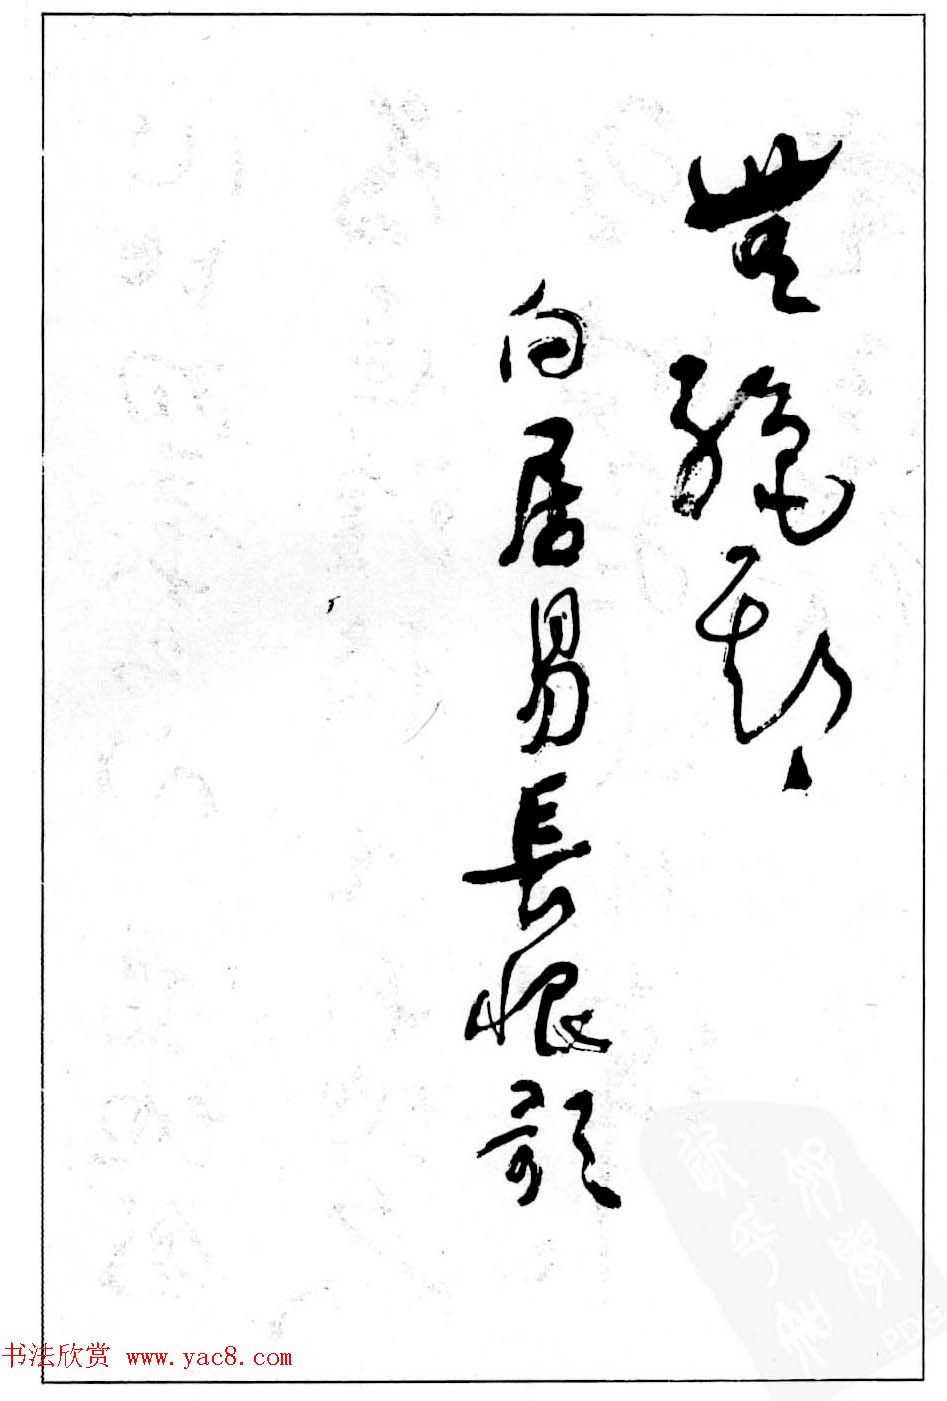 無絕期
白居易長恨歌
书法欣赏 www.yac8.com